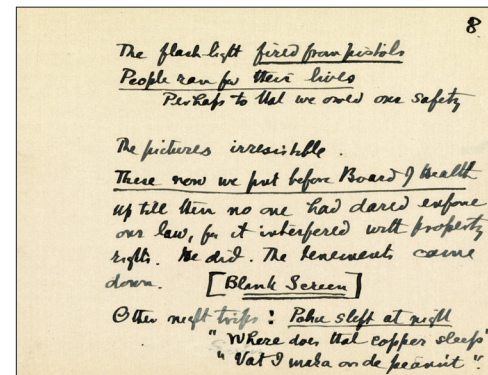 8
The flash light fired from pistols
People ran for their lives
Perhaps to that we owed our safety
The pictures irresistible.
These now we put before Board of Health
up till then no one had dared enforce
our law, for it interfered with property
rights. We did. The tenements came
down. [Blank Screen]
Other night trips: Police slept at night
"Where does that copper sleep"
"Vat I maka on de peanut".